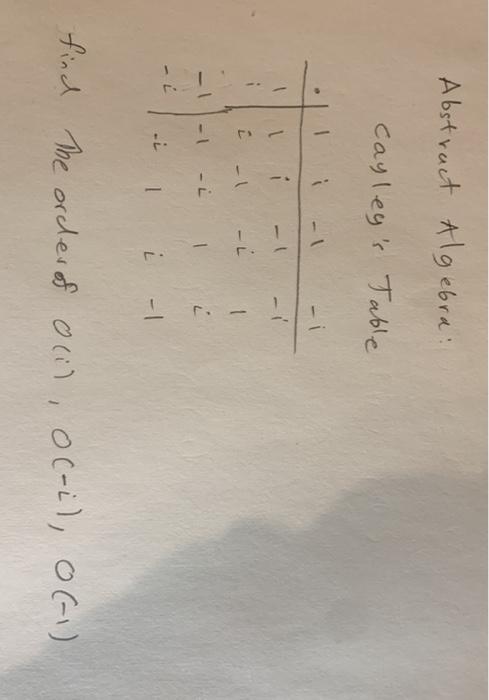 Abstract Algebra:
Cayley's Table
· 1 i -1 -i
1 1 i -1 -i
i i -1 -i 1
-1 -1 -i 1 i
-i -i 1 i -1
find The order of O(i), O(-i), O(-1)